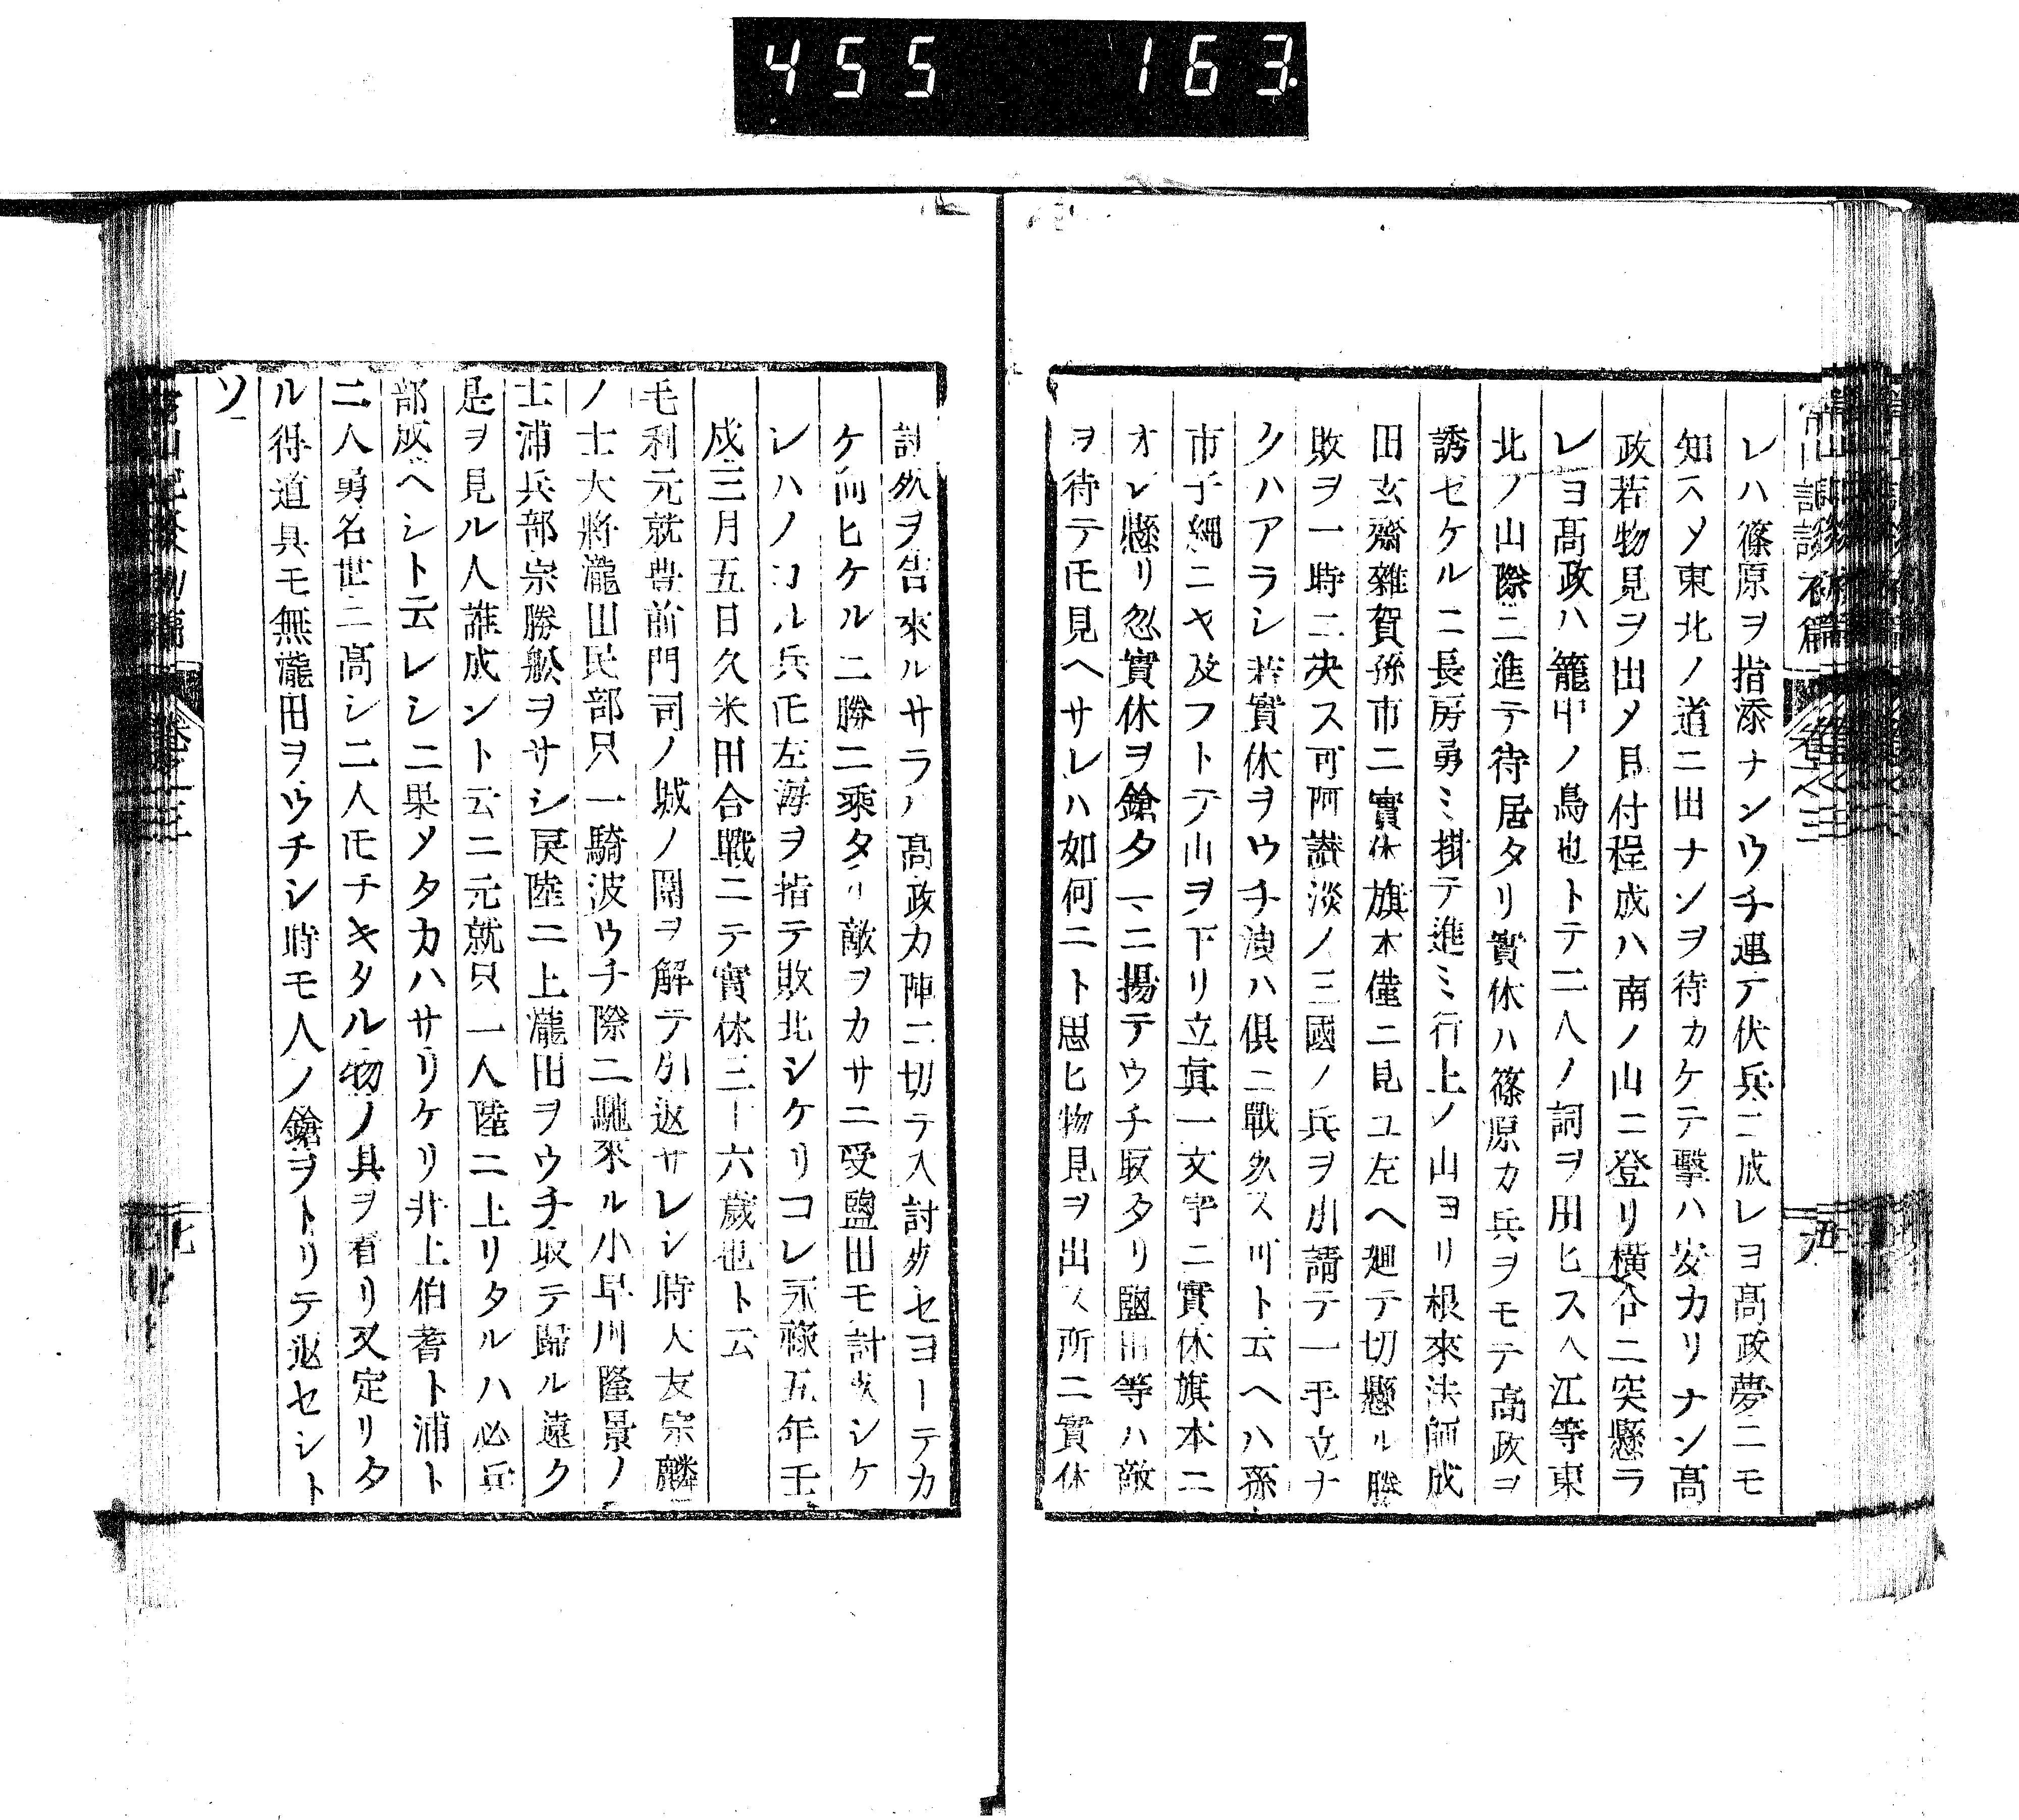 455 163
レハ篠原ヲ指添ナンウチ連テ伏兵ニ成レヨ髙政夢ニモ
知スメ東北ノ道ニ出ナンヲ待カケテ撃ハ安カリナン髙
政若物見ヲ出メ目付程成ハ南ノ山ニ登リ横合ニ突懸ラ
レヨ髙政ハ籠中ノ鳥也トテ二人ノ詞ヲ用ヒスヘ江等東
北ノ山際ニ進テ待居タリ實休ハ篠原カ兵ヲモテ髙政ヲ
誘セケルニ長房勇ミ掛テ進ミ行上ノ山ヨリ根來法師成
田玄齋雜賀孫市二實休旗本僅ニ見ユ左ヘ廻テ切懸ル勝
敗ヲ一時ニ决ス可阿讃淡ノ三國ノ兵ヲ引請テ一手立ナ
クハアラシ若實休ヲウチ洩ハ倶ニ戰死ス可ト云ヘハ孫
市子細ニヤ及フトテ山ヲ下リ立眞一文字ニ實休旗本ニ
オレ懸リ忽實休ヲ鎗タヽニ揚テウチ取タリ鹽田等ハ敵
ヲ待テ𪜈見ヘサレハ如何ニト思ヒ物見ヲ出ス所ニ實休
討死ヲ告來ルサラハ髙政カ陣ニ切テ入討死セヨーテカ
ケ向ヒケルニ勝ニ乘タリ敵ヲカサニ受鹽田モ討死シケ
レハノコル兵𪜈左海ヲ指テ敗北シケリコレ永祿五年壬
戌三月五日久米田合戰ニテ實休三十六歳也ト云
毛利元就豊前門司ノ城ノ圍ヲ解テ引返サレシ時大友宗麟
ノ士大將瀧田民部只一騎波ウチ際ニ馳來ル小早川隆景ノ
士浦兵部宗勝舩ヲサシ戻陸ニ上瀧田ヲウチ取テ歸ル遠ク
是ヲ見ル人誰成ント云ニ元就只一人陸ニ上リタルハ必兵
部成ヘシト云レシニ果メタカハサリケリ井上伯耆ト浦ト
二人勇名世ニ髙シ二人𪜈チキタル物ノ具ヲ着リ又定リタ
ル得道具モ無瀧田ヲウチシ時モ人ノ鎗ヲトリテ返セシト
ソ